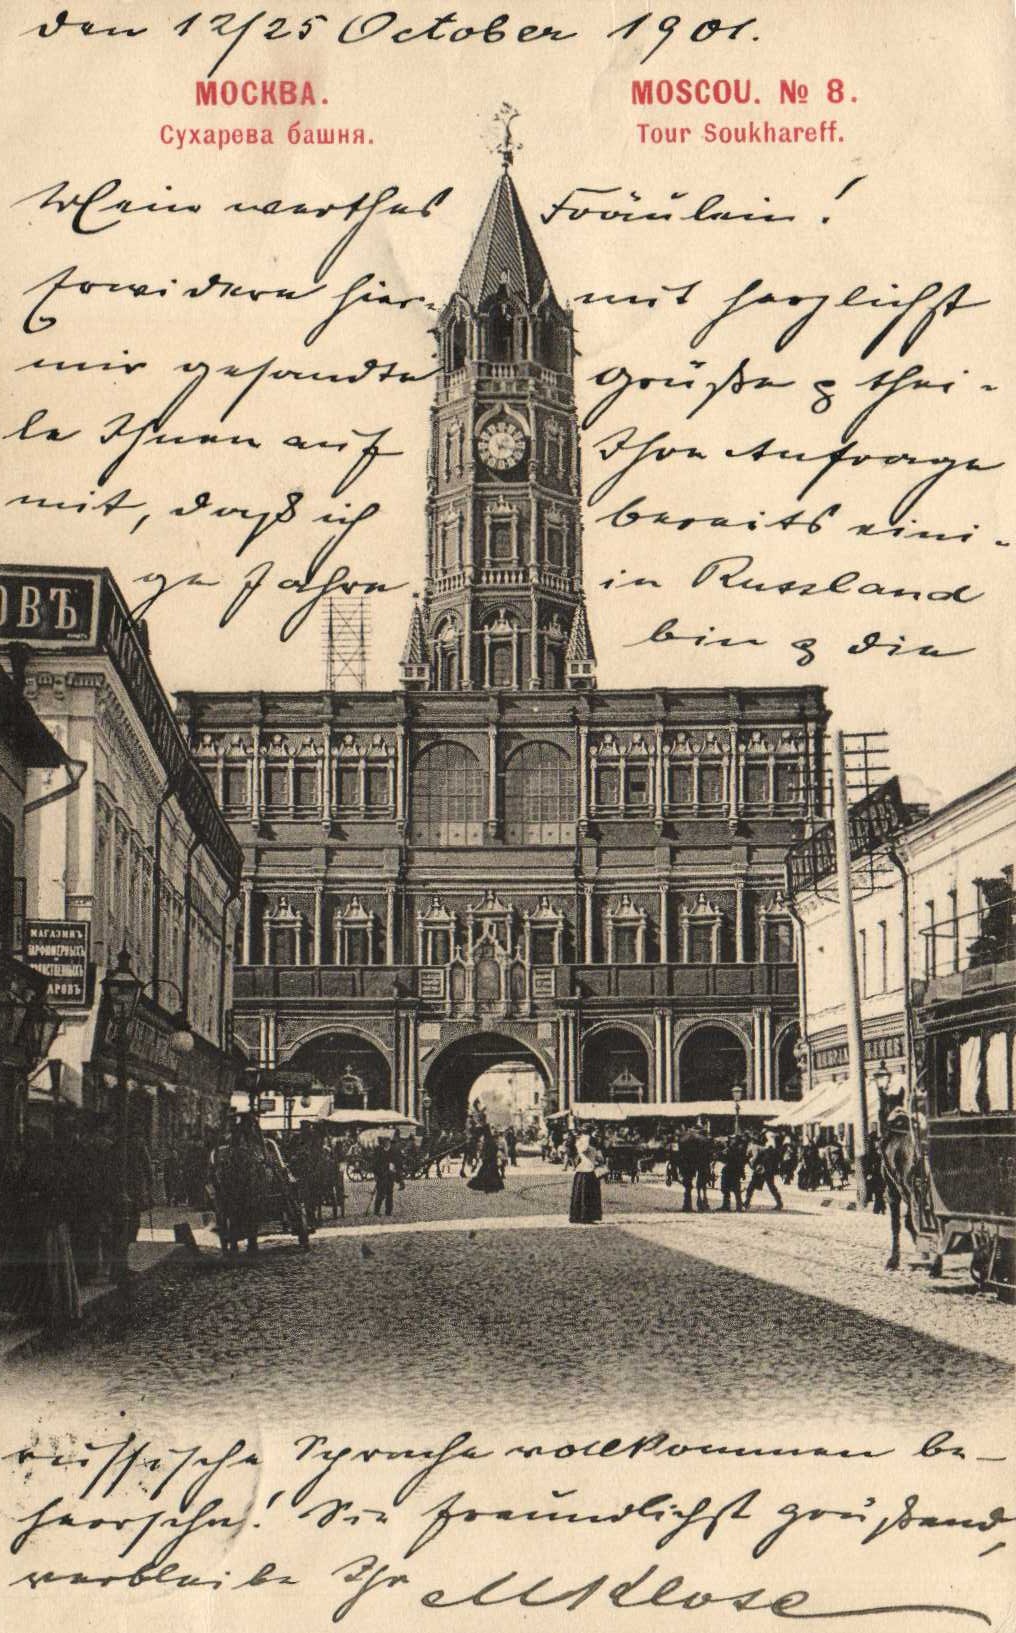 den 12/25 October 1901.
МОСКВА. MOSCOU. № 8.
Сухарева башня. Tour Soukhareff.
Mein werthes Fräulein!
Erwidere hier- mit herzlichst
mir gesandte Grüße & thei-
le Ihnen auf Ihre Anfrage
mit, daß ich bereits eini-
ge Jahre in Russland
bin & die
ОВЪ
МАГАЗИНЪ
ПАРФЮМЕРНЫХЪ
russische Sprache vollkommen be-
herrsche! Sie freundlichst grüßend,
verbleibe Ihr MKlose